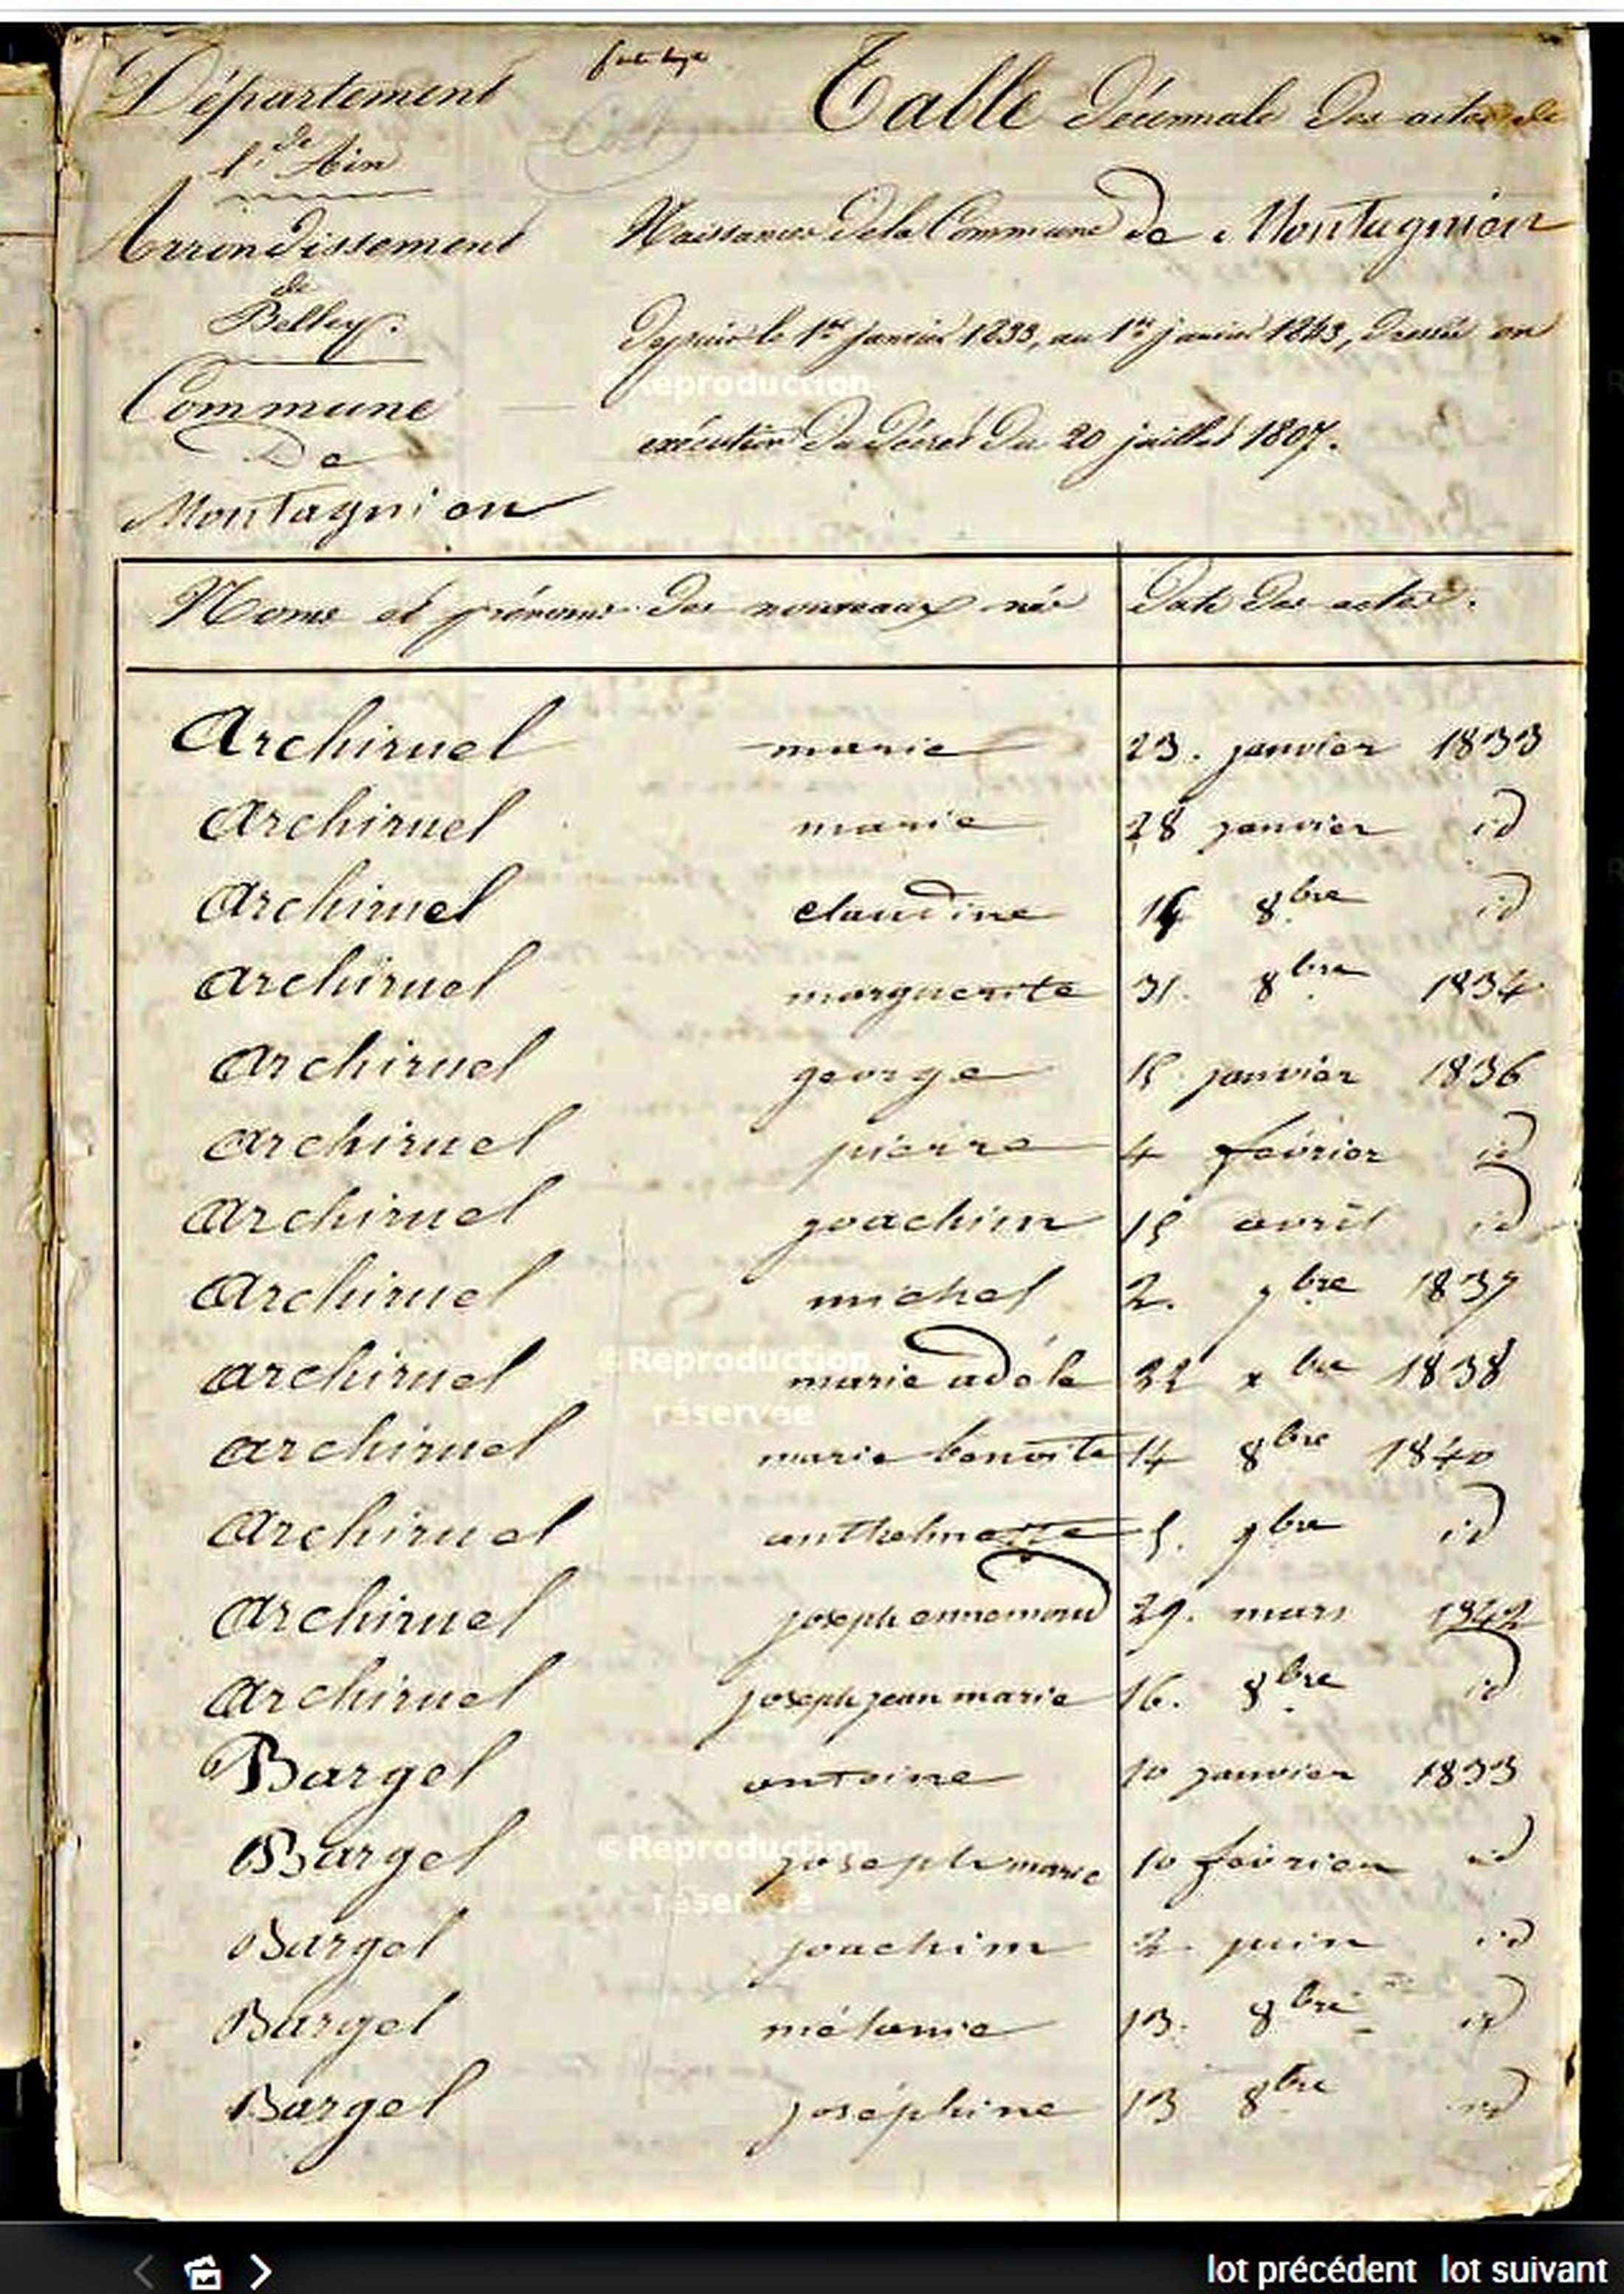 Département
de
l'Ain
Arrondissement
de
Belley.
Commune
De
Montagnion
Table décennale des actes de
Naissances de la Commune de Montagnion
depuis le 1er janvier 1833, au 1er janvier 1843, dressée en
exécution du décret du 20 juillet 1807.
Noms et prénoms des nouveaux nés Date des actes.
Archiruel marie 23. janvier 1833
Archiruel marie 28 janvier id
Archiruel claudine 8bre id
Archiruel marguerite 31. 8bre 1834
Archiruel george 15 janvier 1836
Archiruel pierre 4 février id
Archiruel joachim 15 avril id
Archiruel michel 2. 9bre 1837
Archiruel marie adèle 22 xbre 1838
Archiruel marie benoite 14 8bre 1840
Archiruel anthelmette 5. 9bre id
Archiruel joseph ennemond 29. mars 1842
Archiruel joseph jean marie 16. 8bre id
Bargel antoine 10 janvier 1833
Bargel joseph marie 10 février id
Bargel joachim 2 juin id
Bargel mélanie 13. 8bre id
Bargel joséphine 13 8bre id
©Reproduction
©Reproduction
réservée
©Reproduction
réservée
lot précédent lot suivant